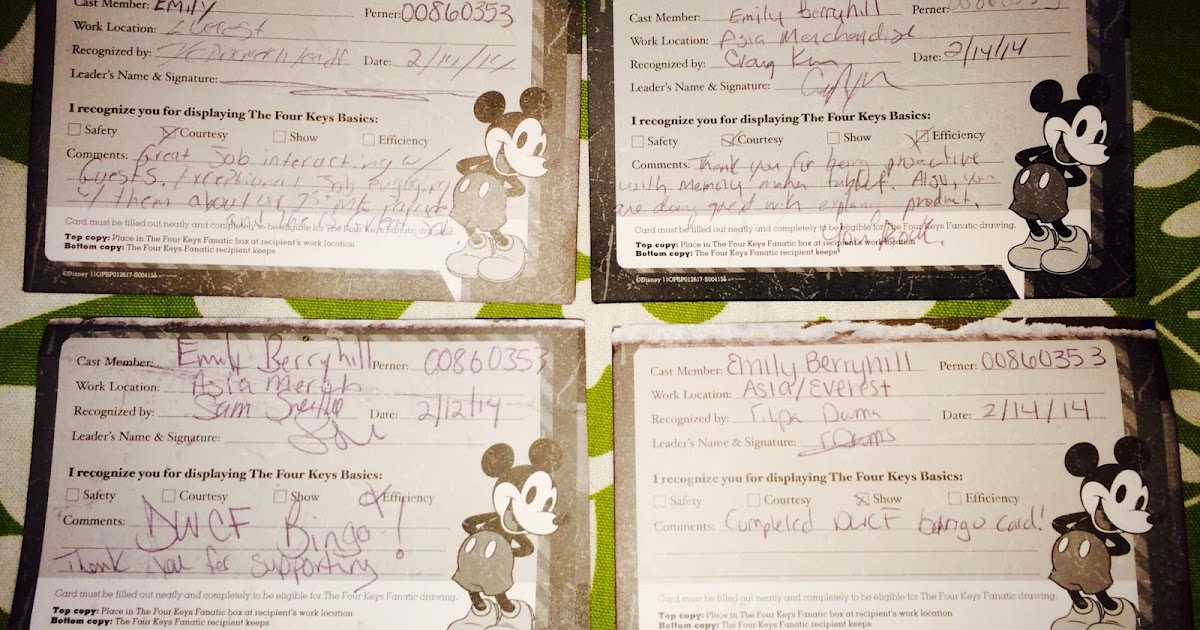 Cast Member: Emily Perner: 00860353
Work Location: Everest
Recognized by: Date: 2/14/14
Leader's Name & Signature:
I recognize you for displaying The Four Keys Basics:
Safety Courtesy Show Efficiency
Comments: Great Job interacting w/
Guests. Exceptional Job
w/ them about
Card must be filled out neatly and completely to be eligible for The Four Keys Fanatic
Top copy: Place in The Four Keys Fanatic box at recipient's work location
Bottom copy: The Four Keys Fanatic recipient keeps
©Disney
Cast Member: Emily Berryhill Perner: 00860353
Work Location: Asia Merchandise
Recognized by: Craig Date: 2/14/14
Leader's Name & Signature:
I recognize you for displaying The Four Keys Basics:
Safety Courtesy Show Efficiency
Comments: Thank you for being proactive
with memory maker tablet. Also, you
are doing great with product.
Card must be filled out neatly and completely to be eligible for The Four Keys Fanatic drawing.
Top copy: Place in The Four Keys Fanatic box at recipient's work location
Bottom copy: The Four Keys Fanatic recipient keeps
©Disney
Cast Member: Emily Berryhill Perner: 00860353
Work Location: Asia Merch
Recognized by: Sam Date: 2/12/14
Leader's Name & Signature:
I recognize you for displaying The Four Keys Basics:
Safety Courtesy Show Efficiency
Comments: DWCF Bingo!
Thank You for supporting!
Card must be filled out neatly and completely to be eligible for The Four Keys Fanatic drawing.
Top copy: Place in The Four Keys Fanatic box at recipient's work location
Bottom copy: The Four Keys Fanatic recipient keeps
Cast Member: Emily Berryhill Perner: 00860353
Work Location: Asia/Everest
Recognized by: Date: 2/14/14
Leader's Name & Signature:
I recognize you for displaying The Four Keys Basics:
Safety Courtesy Show Efficiency
Comments: Completed DWCF bingo card!
Card must be filled out neatly and completely to be eligible for The Four Keys Fanatic drawing.
Top copy: Place in The Four Keys Fanatic box at recipient's work location
Bottom copy: The Four Keys Fanatic recipient keeps